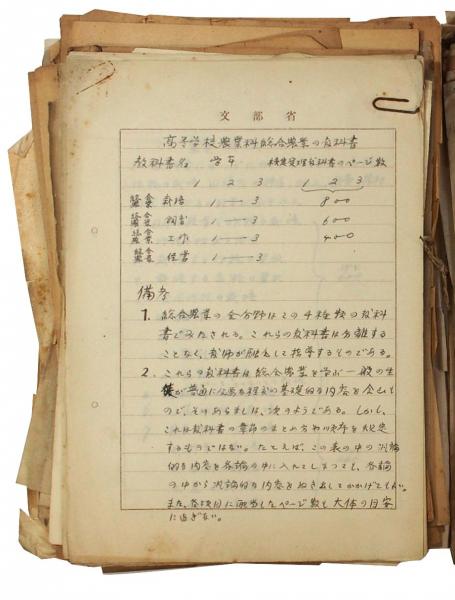 文部省
高等学校農業科総合農業の教科書
教科書名 学年 検定受理教科書のページ数
1 2 3 1 2 3
総合農業 栽培 1 — 3 800
総合農業 飼育 1 — 3 600
総合農業 工作 1 — 3 400
総合農業 経営 1 — 3
備考
1. 総合農業の全分野はこの4種類の教科
書でみたされる。これらの教科書は分離する
ことなく、教師が融合して指導するものである。
2. これらの教科書は総合農業を学ぶ一般の生
徒が普通に必要な程度の基礎的な内容を含むも
ので、そのあらましは、次のようである。しかし、
これは教科書の章節のまとめ方や順序を規定
するものではない。たとえば、この表の中の汎論
的な内容を各論の中に入れてしまつても、各論
の中から汎論的な内容をぬき出してかかげてもよい。
また、各項目に配当したページ数も大体の目安
に過ぎない。